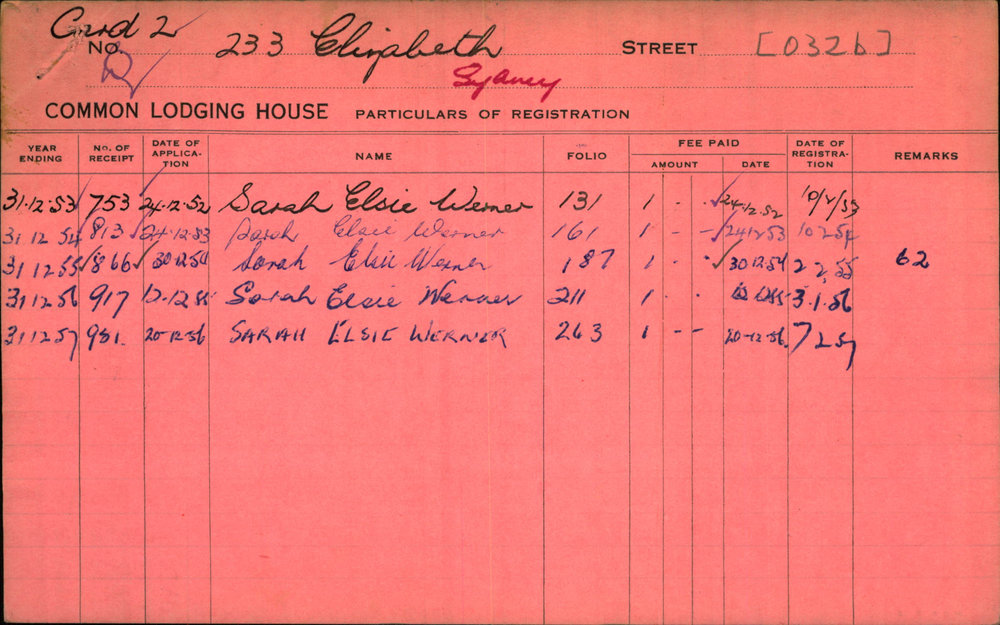 Card 2
No. 233 Elizabeth STREET [0326]
Sydney
COMMON LODGING HOUSE PARTICULARS OF REGISTRATION
YEAR ENDING No. OF RECEIPT DATE OF APPLICA-TION NAME FOLIO FEE PAID AMOUNT DATE DATE OF REGISTRA-TION REMARKS
31.12.53 753 24.12.52 Sarah Elsie Werner 131 1 - - 24.12.52 10/2/53
31 12 54 813 24.12.53 Sarah Elsie Werner 161 1 - - 24.12.53 10 2 54
31 12 55 866 30.12.54 Sarah Elsie Werner 187 1 - - 30.12.54 2 2 55 62
31.12.56 917 12.12.55 Sarah Elsie Werner 211 1 - - 12.12.55 3.1.56
31.12.57 981. 20-12-56 SARAH ELSIE WERNER 263 1 - - 20-12-56. 7 2 57